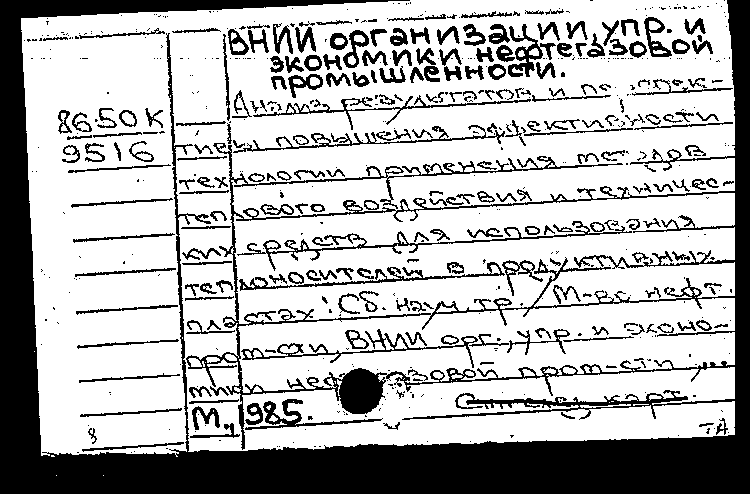 ВНИИ организации, упр. и
экономики нефтегазовой
промышленности.
Анализ результатов и перспек-
86.50К
9516
тивы повышения эффективности
технологии применения методов
теплового воздействия и техничес-
ких средств для использования
теплоносителей в продуктивных
пластах: Сб. науч. тр. М-во нефт.
пром-сти, ВНИИ орг., упр. и эконо-
мики нефтегазовой пром-сти ;...
М., 1985.
8
ТА